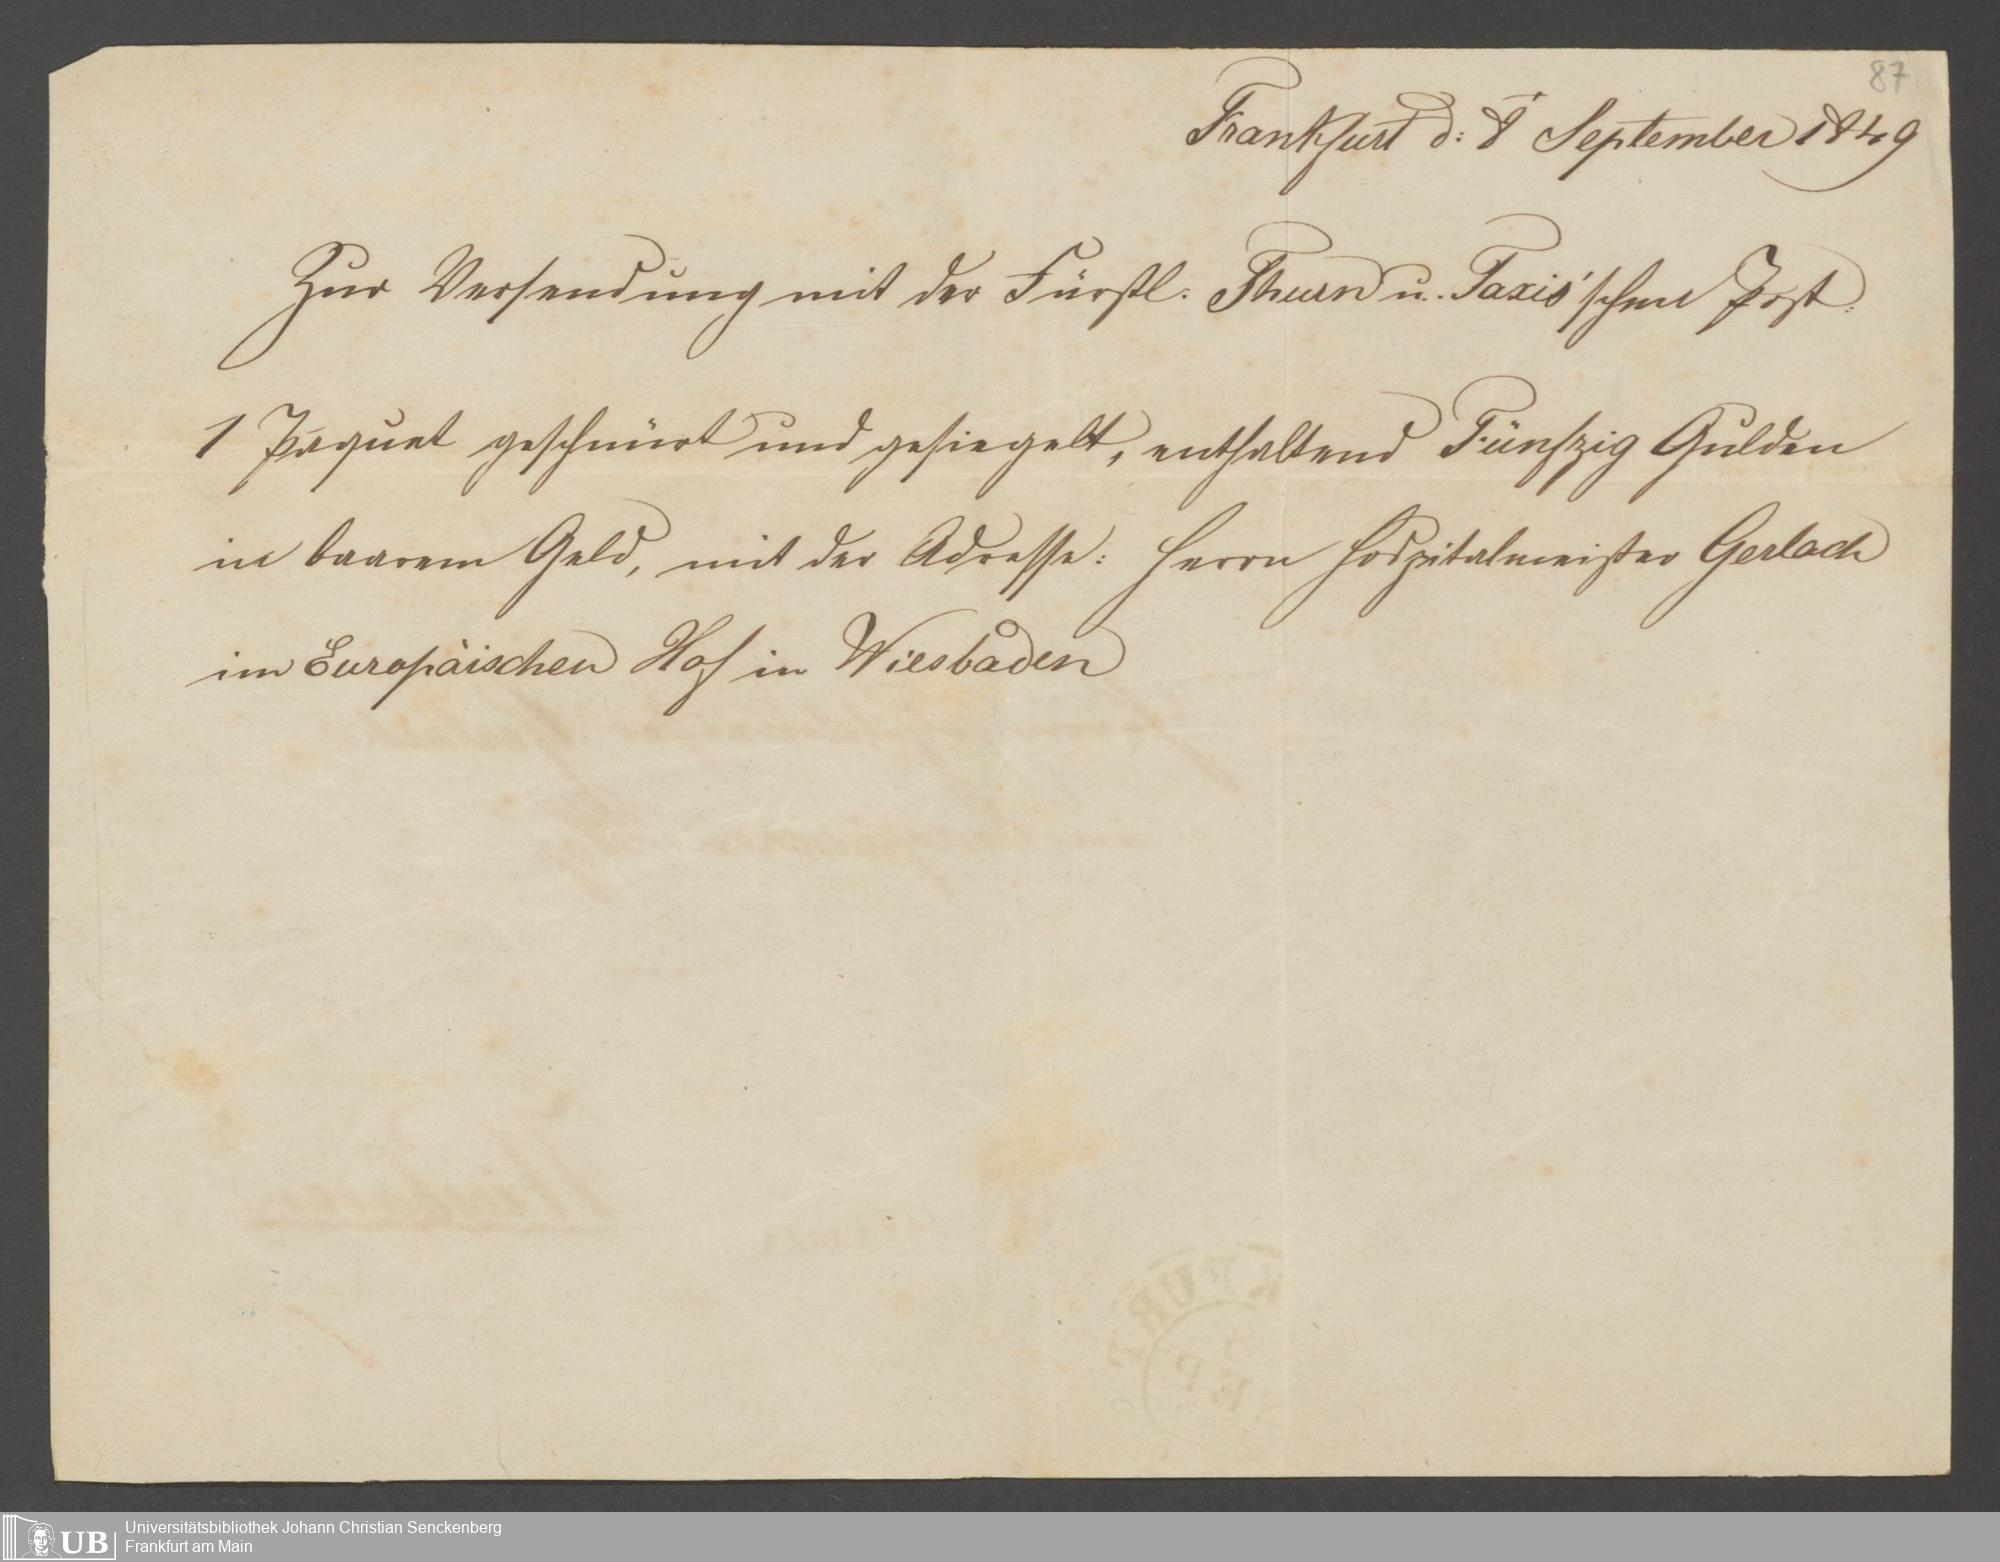 87
Frankfurt d: 8 September 1849
Zur Versendung mit der Fürstl: Thurn u. Taxis'schen Post:
1 Paquet geschnürt und gesiegelt, enthaltend Fünfzig Gulden
in baarem Geld, mit der Adresse: Herrn Hospitalmeister Gerlach
im Europäischen Hof in Wiesbaden
UB
Universitätsbibliothek Johann Christian Senckenberg
Frankfurt am Main